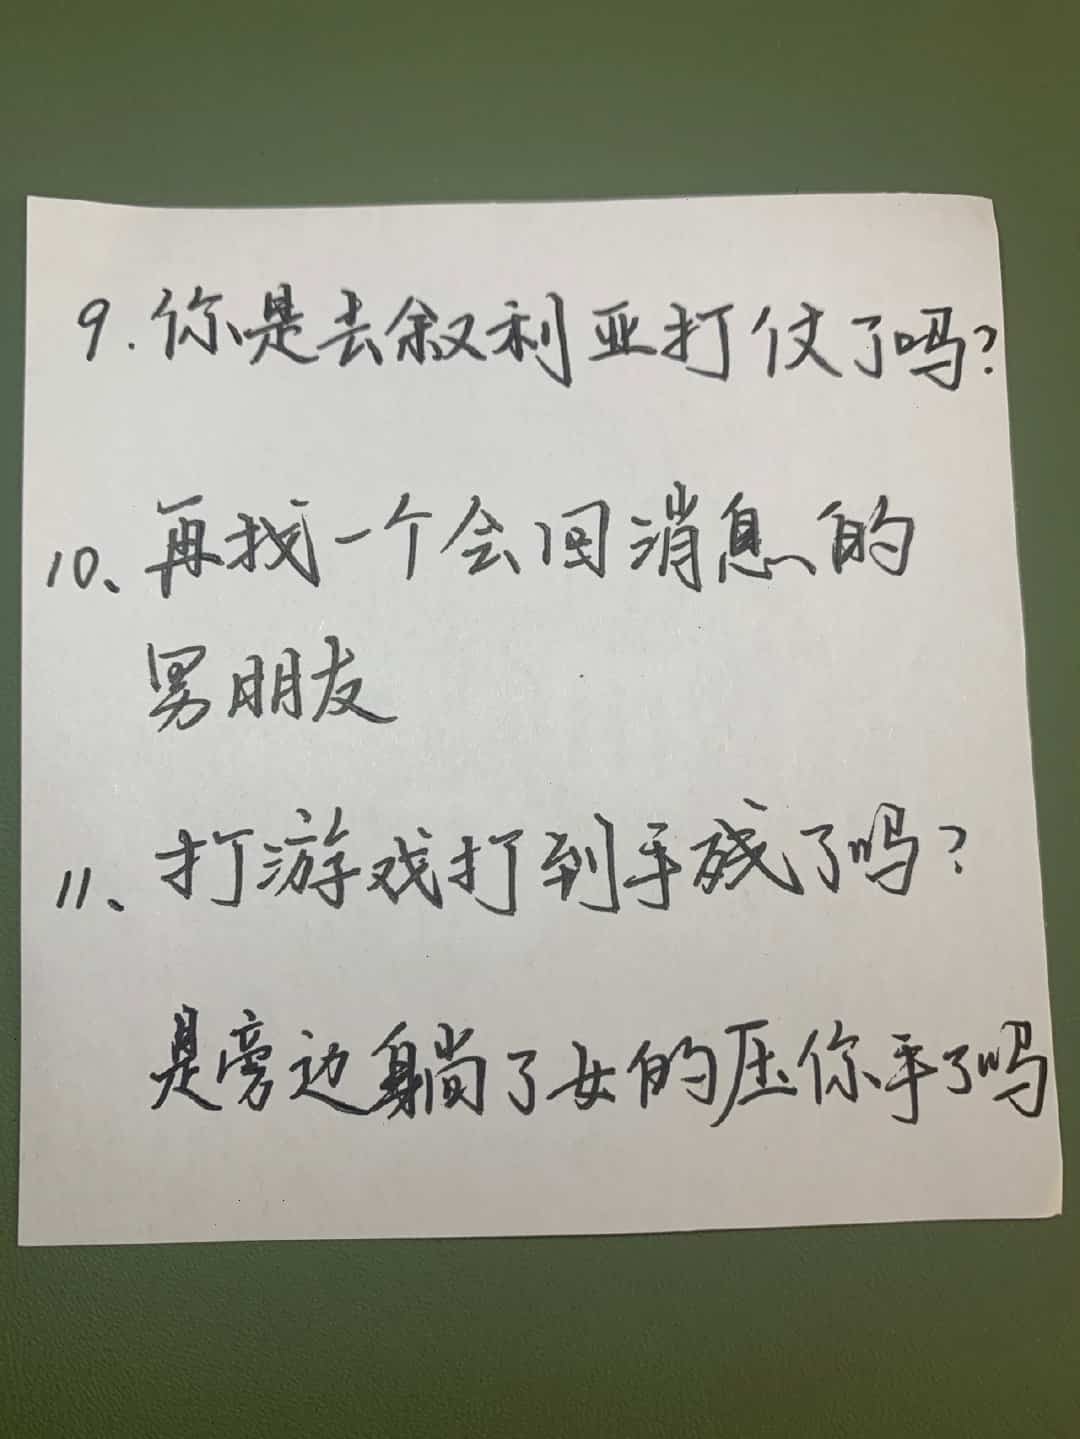 9.你是去叙利亚打仗了吗?
10、再找一个会回消息的
男朋友
11、打游戏打到手残了吗?
是旁边躺了女的压你手了吗